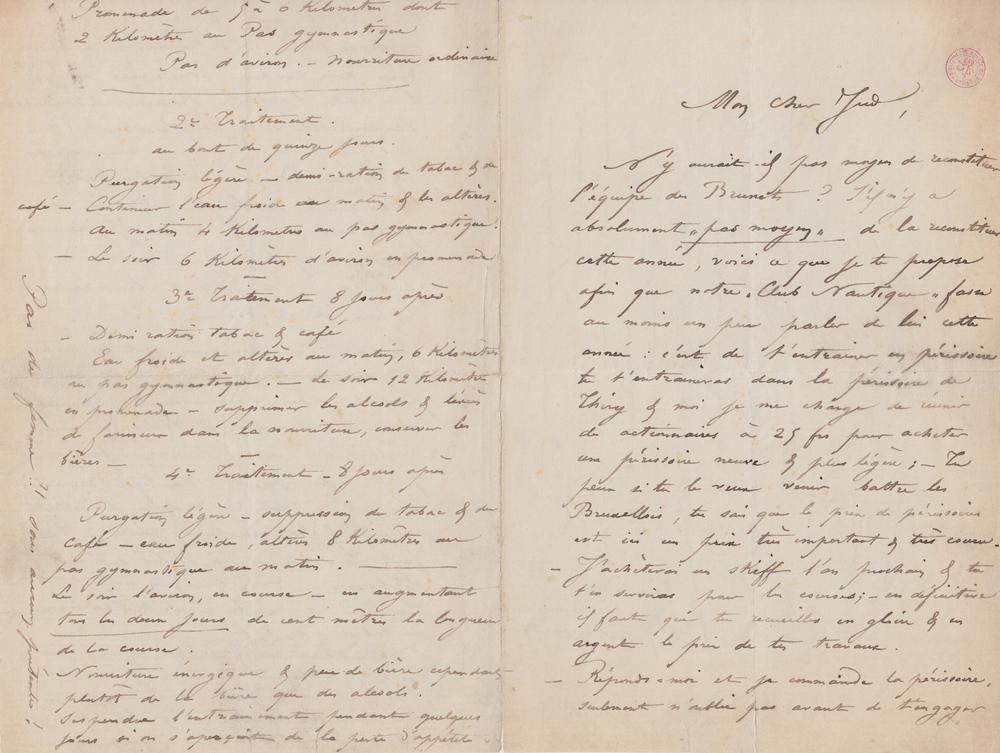 Promenade de 5 à 6 Kilomètres dont
2 Kilomètre au Pas gymnastique
Pas d'aviron. — nourriture ordinaire
2e Traitement.
au bout de quinze jours.
Purgation légère — demi-ration de tabac & de
café — Continuer l'eau froide au matin & les altères.
au matin 4 Kilomètres au pas gymnastique.
— Le soir 6 Kilomètres d'aviron en promenade
3e Traitement 8 jours après
— Demi ration tabac & café
Eau froide et altères au matin, 6 Kilomètres
au pas gymnastique. — Le soir 12 Kilomètre
en promenade — supprimer les alcools &
de farineux dans la nourriture, conserver les
bières —
4e Traitement — 8 jours après
Purgation légère — suppression de tabac & de
café — eau froide, altères 8 Kilomètres au
pas gymnastique au matin. —
Le soir l'aviron, en course — en augmentant
tous les deux jours de cent mètres la longueur
de la course.
Nourriture énergique & peu de bière cependant
plutot de la bière que des alcools.
Suspendre l'entrainement pendant quelques
jours si on s'aperçoit de la perte d'appétit —
Pas de femme !! sous aucun prétexte !
Mon cher Fred,
N'y aurait-il pas moyen de reconstituer
l'équipe des Brunets ? S'il n'y a
absolument "pas moyen" de la reconstituer
cette année, voici ce que je te propose
afin que notre "Club Nautique" fasse
au moins un peu parler de lui cette
année : c'est de t'entrainer en périssoire
tu t'entraineras dans la périssoire de
Thiry & moi je me charge de réunir
de actionnaires à 25 frs pour acheter
une périssoire neuve & plus légère ; — Tu
peux si tu le veux venir battre les
Bruxellois, tu sais que le prix de périssoire
est ici un prix très important & très couru.
— J'achèterai un skiff l'an prochain & tu
t'en serviras pour les courses ; — en définitive
il faut que tu recueilles en gloire & en
argent le prix de tes travaux.
— Réponds-moi et je commande la périssoire,
seulement n'oublie pas avant de t'engager